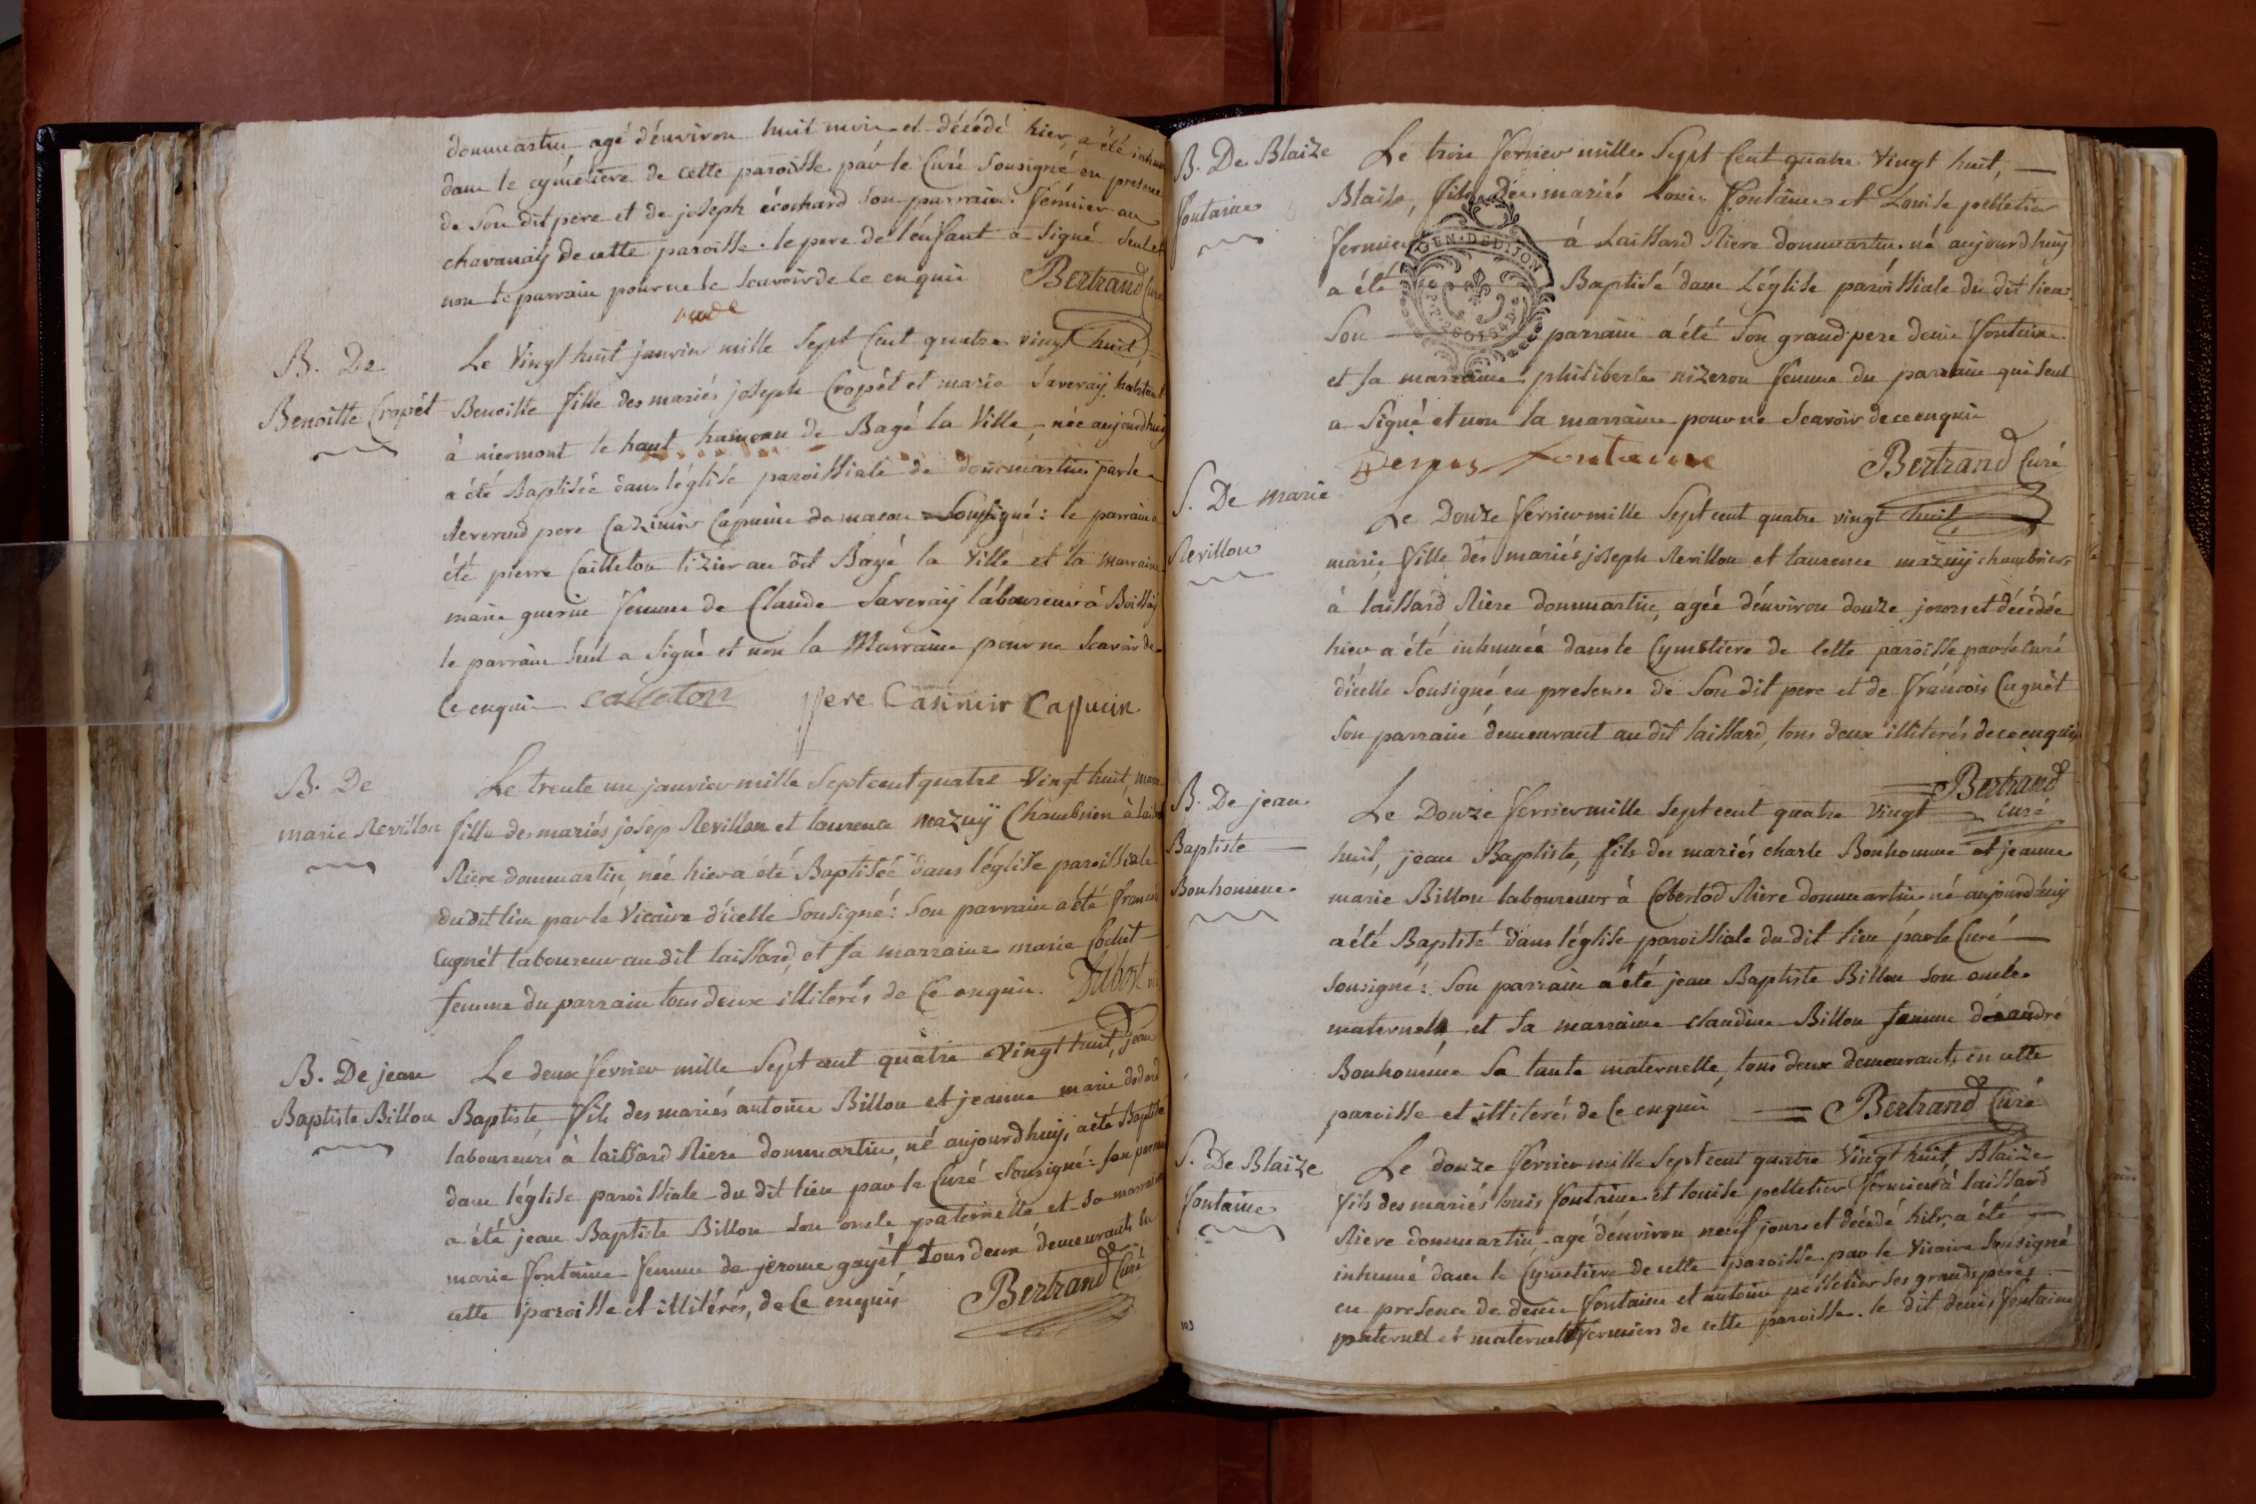 dommartin agé d'environ huit mois et décédé hier, a été inhumé
dans le cymetiere de cette paroisse par le Curé Sousigné en presence
de son dit pere et de joseph écochard son parrain. fermier au
chavanaÿ de cette paroisse. le pere de l'enfant a signé seul et
non le parrain pour ne le scavoir de ce enquis Bertrand Curé
B. De
Benoitte Cropét
Le Vingt huit janvier mille Sept Cent quatre vingt huit
Benoitte fille des mariés joseph Cropét et marie Saveraÿ habitant
à niermont le haut hameau de Bagé la Ville, née aujourdhuÿ
a été Baptisée dans l'église paroissiale de dommartin par le
Reverend pere Cazimir Capucin de macon Sousigné: le parrain a
été pierre Cailleton tizier au dit Bagé la Ville et la marraine
marie guerin femme de Claude Saveraÿ laboureur à Boissaÿ
le parrain seul a signé et non la Marraine pour ne scavoir de
Ce enquis cailleton pere Casimir Capucin
B. De
marie Revillon
Le trente un janvier mille Sept cent quatre Vingt huit, marie
fille des mariés josep Revillon et laurence mazuÿ Chambrier à laissard
Riere dommartin, née hier a été Baptisée dans l'église paroissiale
du dit lieu par le Vicaire d'icelle Sousigné: Son parrain a été francois
Cugnét laboureur au dit laissard, et sa marraine marie Cochet
femme du parrain tous deux illiterés de Ce enquis. Dubost
B. De jean
Baptiste Billon
Le deux février mille Sept cent quatre Vingt huit, jean
Baptiste fils des mariés antoine Billon et jeanne marie
laboureurs à laissard Riere dommartin, né aujourdhuÿ, a été Baptisé
dans l'église paroissiale du dit lieu par le Curé Sousigné: Son parrain
a été jean Baptiste Billon son oncle paternelle et sa marraine
marie fontaine femme de jerome gayét tous deux demeurants en
cette paroisse et illitérés, de Ce enquis Bertrand Curé
B. De Blaize
fontaine
Le trois fevrier mille Sept Cent quatre Vingt huit,
Blaise, fils des mariés Louis fontaine et Louise pelletier
fermier à Laissard Riere dommartin né aujourdhuÿ
GEN. DE DIJON
a été Baptisé dans L'église paroissiale du dit lieu
Son parrain a été son grand pere denis fontaine
et sa marraine philiberte nizeron femme du parrain qui seul
a signé et non la marraine pour ne scavoir de ce enquis
fontaine Bertrand Curé
S. De marie
Revillon
Le Douze fevrier mille Sept cent quatre vingt huit
marie fille des mariés joseph Revillon et laurence mazuÿ chambrier
à laissard Riere dommartin, agée d'environ douze jours et décédée
hier a été inhumée dans le Cymetiere de cette paroisse par le Curé
d'icelle Sousigné en presence de son dit pere et de françois Cugnét
son parrain demeurant au dit laissard, tous deux illiterés de ce enquis
Bertrand
Curé
B. De jean
Baptiste
Bonhomme
Le Douze fevrier mille Sept cent quatre Vingt
huit, jean Baptiste, fils des mariés charle Bonhomme et jeanne
marie Billon laboureur à Cobertod Riere dommartin né aujourdhuÿ
a été Baptisé dans l'église paroissiale du dit lieu par le Curé
Sousigné: Son parrain a été jean Baptiste Billon son oncle
maternel, et sa marraine claudine Billon femme d'éandré
Bonhomme sa tante maternelle, tous deux demeurants en cette
paroisse et illiterés de Ce enquis Bertrand Curé
S. De Blaize
fontaine
Le douze février mille Sept cent quatre Vingt huit, Blaize
fils des mariés louis fontaine et louise pelletier fermier à laissard
Riere dommartin agé d'environ neuf jours et décédé hier, a été
inhumé dans le Cymetiere de cette paroisse par le Vicaire Sousigné
en presence de denis fontaine et antoine pélletier ses grands peres
paternel et maternel fermiers de cette paroisse. le dit denis fontaine
103